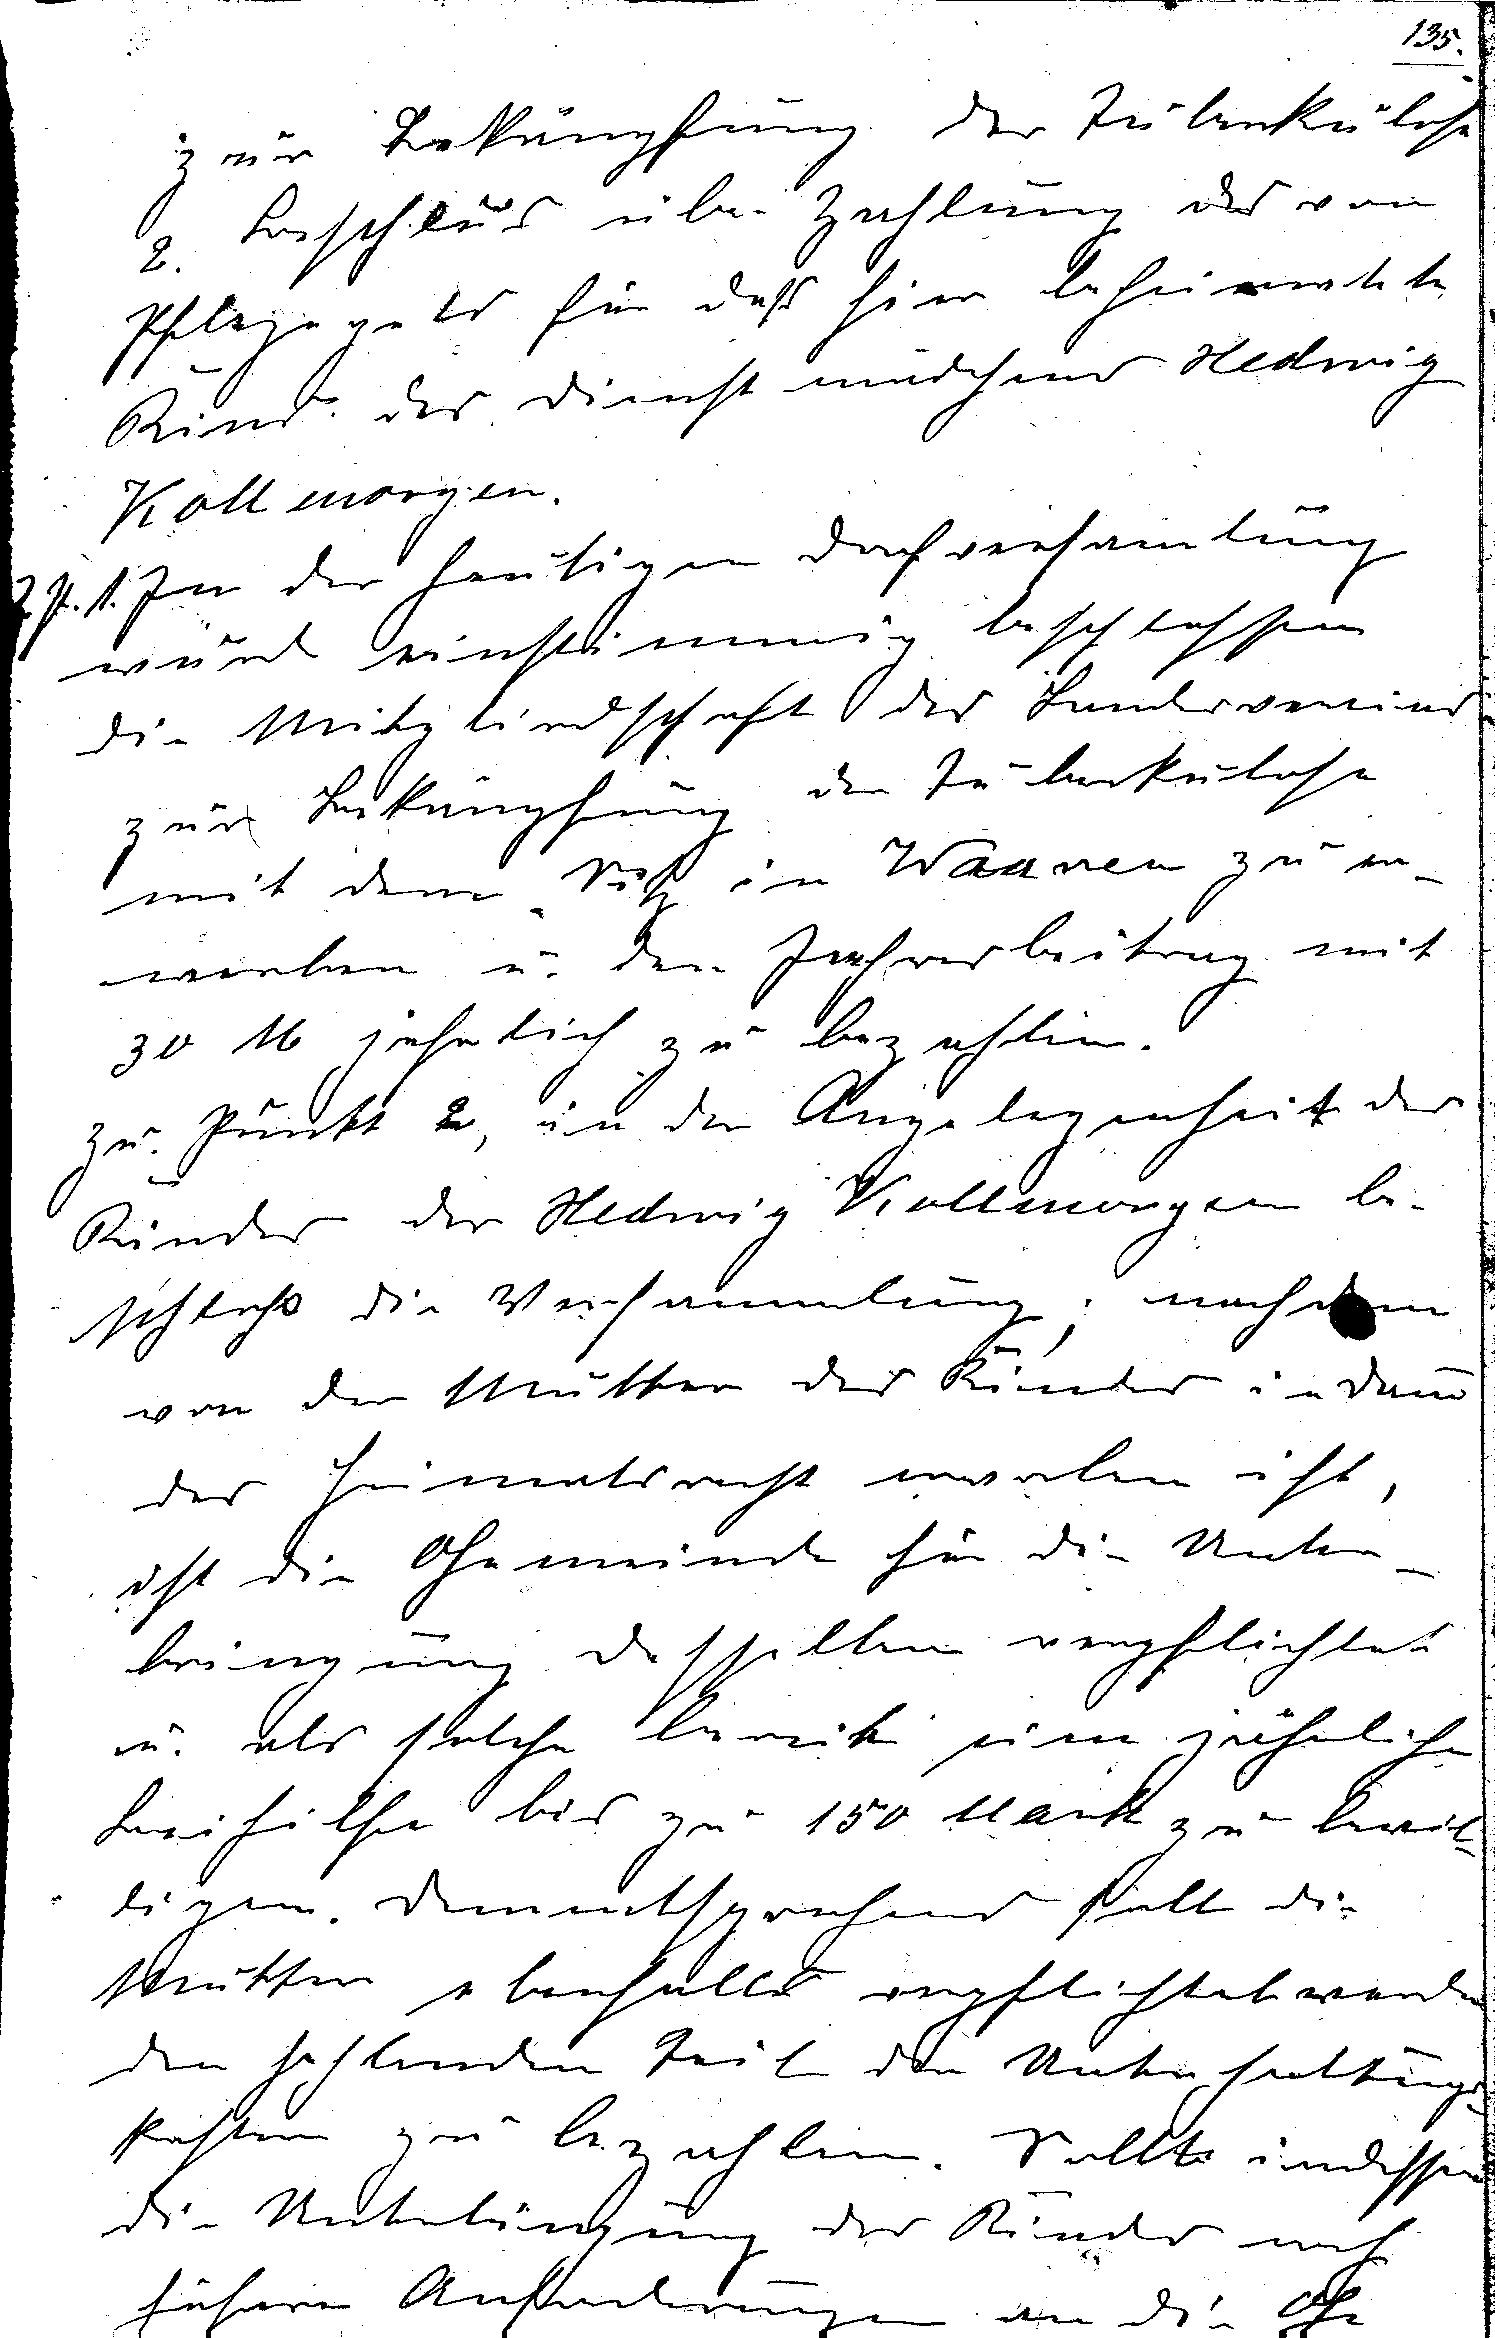 135.
zur Bekämpfung der Tuberkulose
2. Beschluß über Zahlung des von
Pflegegeld für daß hier beheimatete
Kind des Dienstmädchens Hedwig
Kollmorgen.
Z. P. 1. In der heutigen Dorfversamlung
wurde einstimmig beschlossen
die Mitgliedschaft des Landesvereins
zur Bekämpfung der Tuberkulose
mit dem Sitz in Waaren zu er-
werben u. den Jahresbeitrag mit
30 M jährlich zu bezahlen.
zu Punkt 2, in der Angelegenheit des
Kindes der Hedwig Kollmorgen be-
schloß die Versammlung, nachdem
von der Mutter des Kindes in
das Heimatsrecht erworben ist,
ist die Gemeinde für die Unter-
bringung desselben verpflichtet
u. als solche bereit eine jährliche
Beihilfe bis zu 150 Mark zu bewil-
ligen. Dementsprechend soll die
Mutter ebenfalls verpflichtet werden
den fehlenden Teil der Unterhaltungs-
kosten zu bezahlen. Sollte indessen
die Unterbringung des Kindes noch
höhere Anforderungen an die Ge